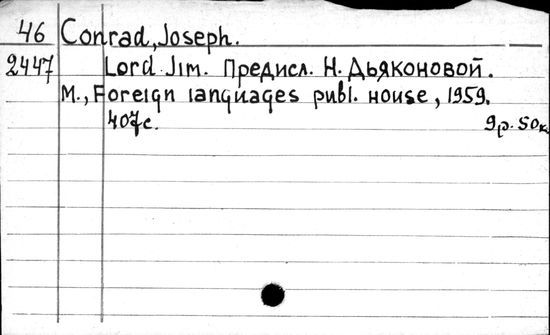 46 Conrad, Joseph.
2447 Lord Jim. Предисл. Н. Дьяконовой.
М., Foreign languages publ. house, 1959.
407с. 9р. 50к